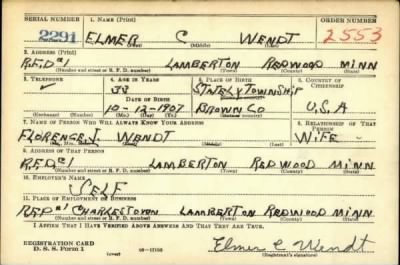 SERIAL NUMBER 1. NAME (Print) ORDER NUMBER
2291 ELMER C WENDT 2553
(First) (Middle) (Last)
2. ADDRESS (Print)
R.F.D #1 LAMBERTON REDWOOD MINN
(Number and street or R. F. D. number) (Town) (County) (State)
3. TELEPHONE 4. AGE IN YEARS 5. PLACE OF BIRTH 6. COUNTRY OF CITIZENSHIP
33 STATELY TOWNSHIP
DATE OF BIRTH (Town or county)
10-12-1907 BROWN CO U.S.A
(Exchange) (Number) (Mo.) (Day) (Yr.) (State or country)
7. NAME OF PERSON WHO WILL ALWAYS KNOW YOUR ADDRESS 8. RELATIONSHIP OF THAT PERSON
FLORENCE J. WENDT WIFE
(Mr., Mrs., Miss) (First) (Middle) (Last)
9. ADDRESS OF THAT PERSON
R.F.D. #1 LAMBERTON REDWOOD MINN.
(Number and street or R. F. D. number) (Town) (County) (State)
10. EMPLOYER'S NAME
SELF
11. PLACE OF EMPLOYMENT OR BUSINESS
R.F.D #1 CHARLESTOWN LAMBERTON REDWOOD MINN.
(Number and street or R. F. D. number) (Town) (County) (State)
I AFFIRM THAT I HAVE VERIFIED ABOVE ANSWERS AND THAT THEY ARE TRUE.
REGISTRATION CARD
D. S. S. Form 1 (over) Elmer C Wendt
(Registrant's signature)